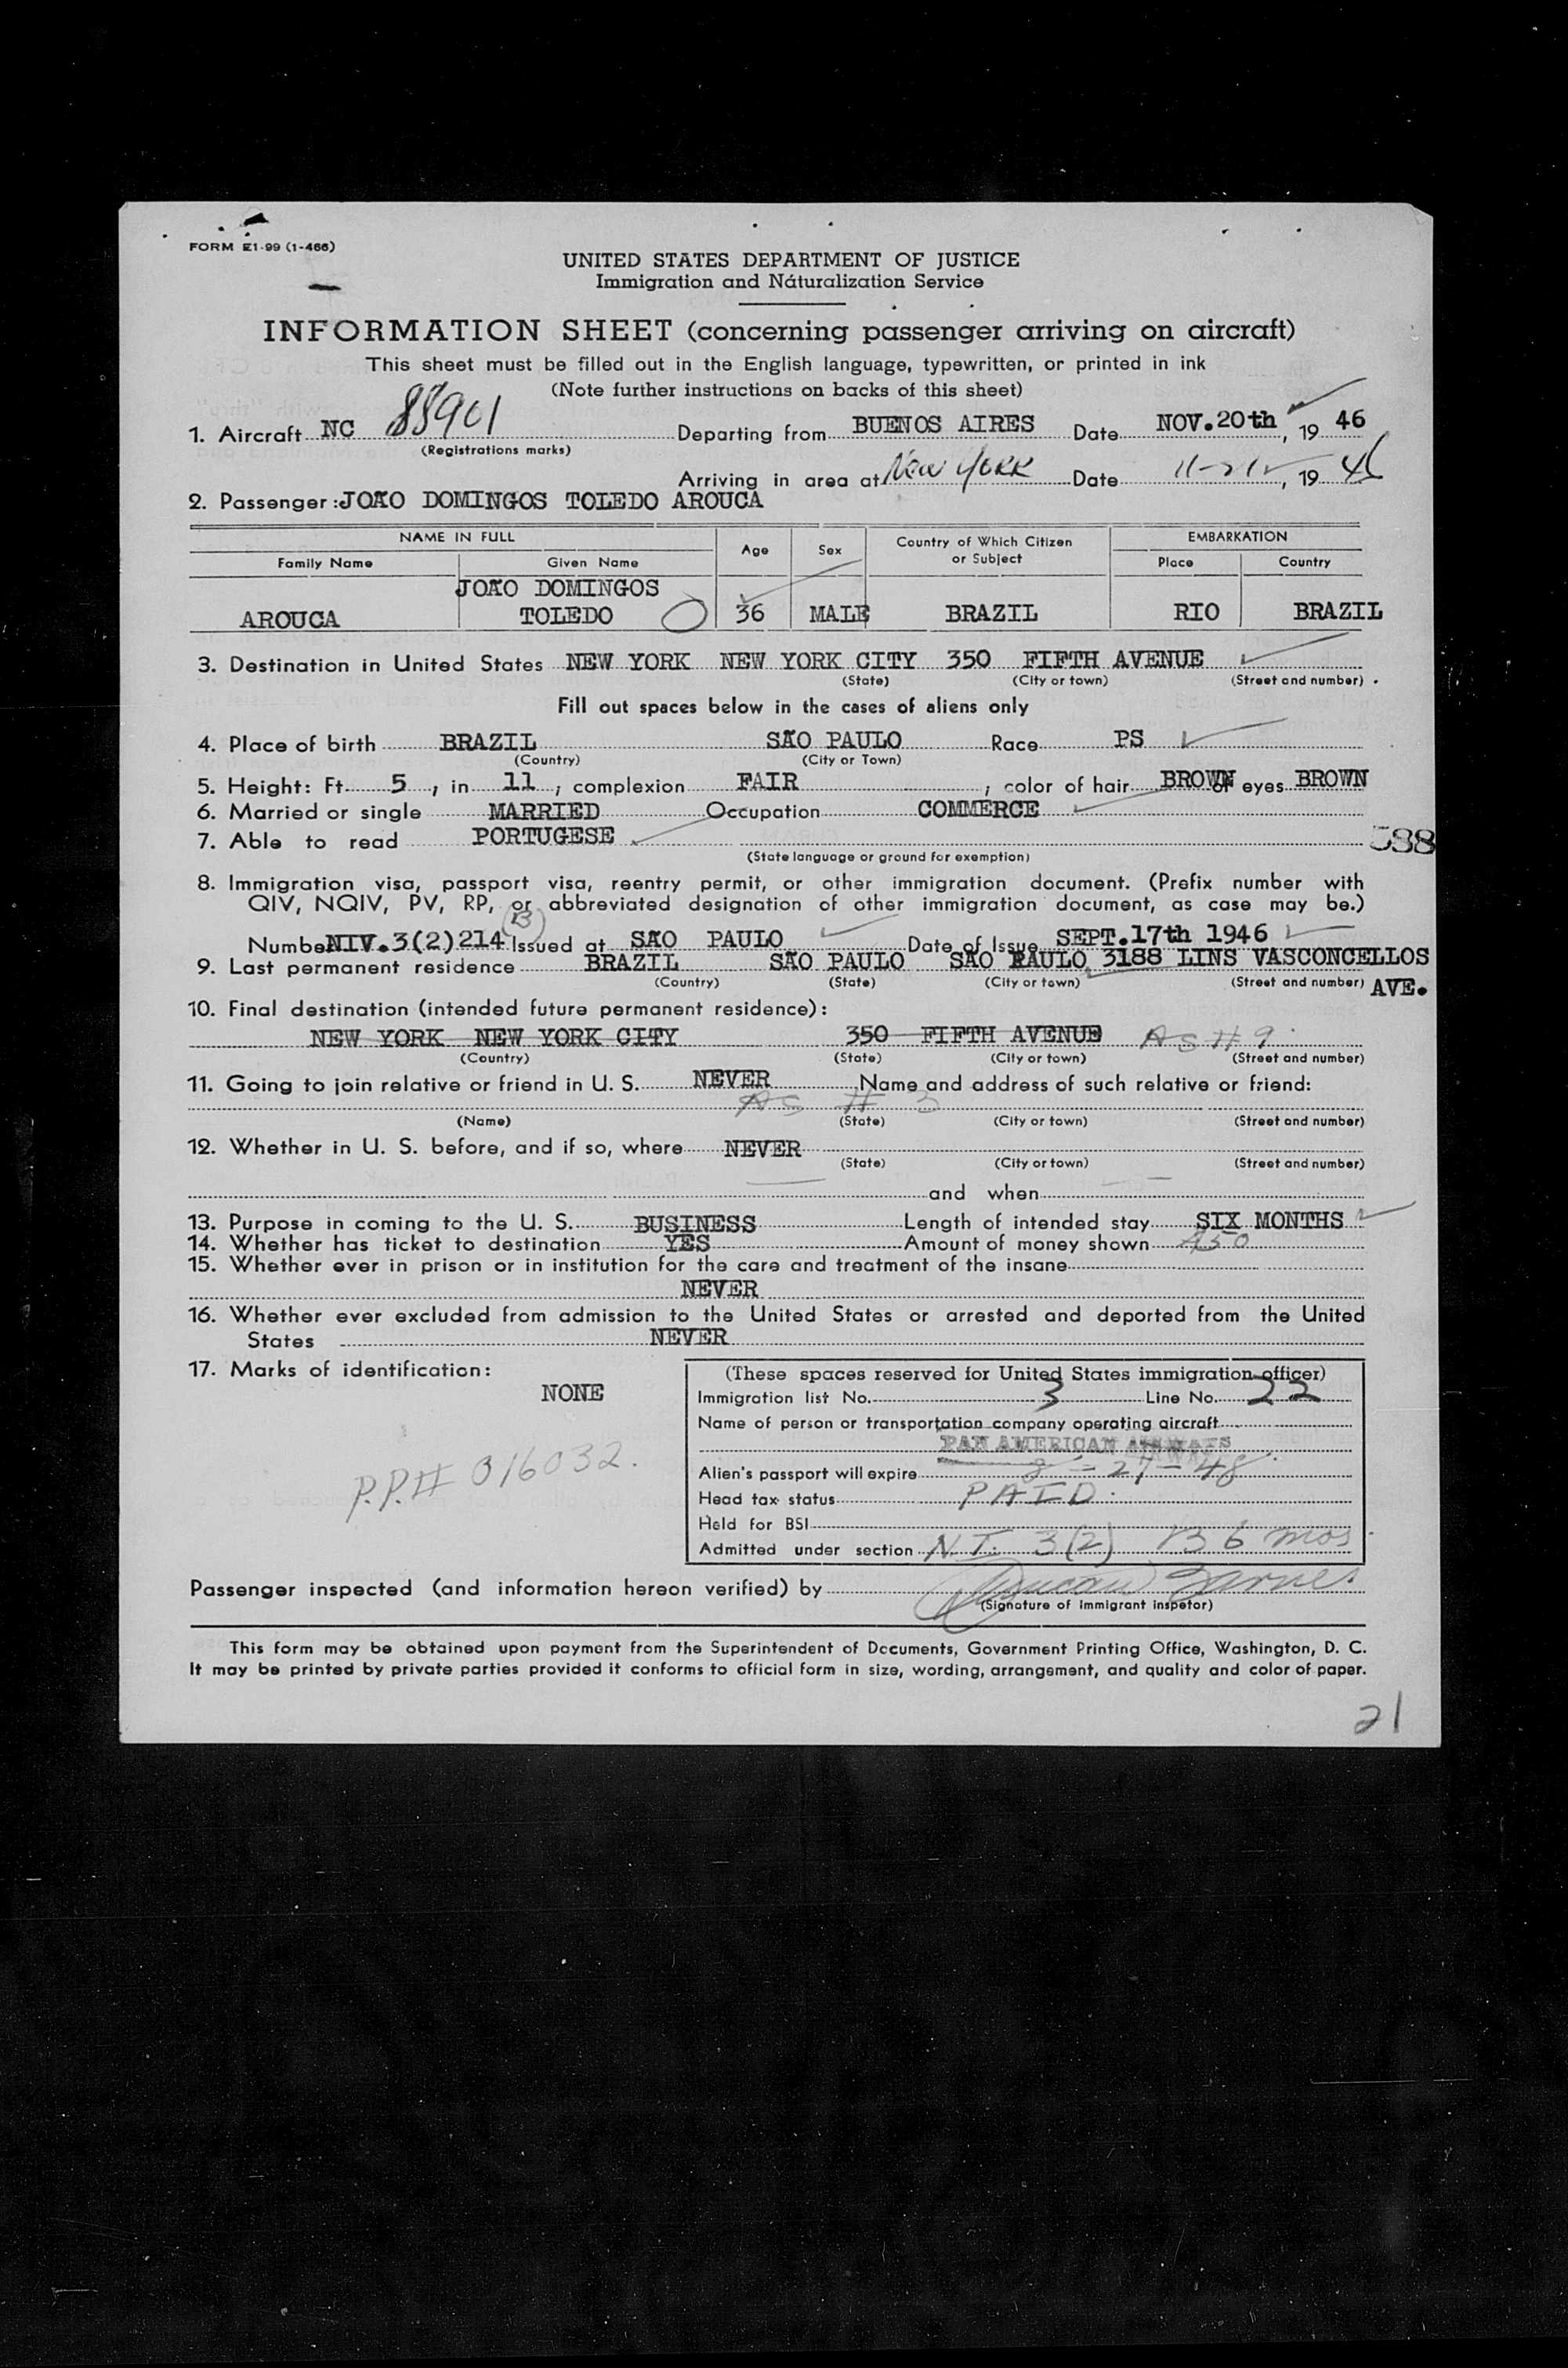 FORM E1-99 (1-466)
UNITED STATES DEPARTMENT OF JUSTICE
Immigration and Naturalization Service
INFORMATION SHEET (concerning passenger arriving on aircraft)
This sheet must be filled out in the English language, typewritten, or printed in ink
(Note further instructions on backs of this sheet)
1. Aircraft NC 88901 Departing from BUENOS AIRES Date NOV.20th, 19 46
(Registrations marks)
Arriving in area at New York Date 11-21, 19 46
2. Passenger: JOÃO DOMINGOS TOLEDO AROUCA
NAME IN FULL Age Sex Country of Which Citizen or Subject EMBARKATION
Family Name Given Name Place Country
JOÃO DOMINGOS
AROUCA TOLEDO 36 MALE BRAZIL RIO BRAZIL
3. Destination in United States NEW YORK NEW YORK CITY 350 FIFTH AVENUE
(State) (City or town) (Street and number)
Fill out spaces below in the cases of aliens only
4. Place of birth BRAZIL SÃO PAULO Race PS
(Country) (City or Town)
5. Height: Ft. 5, in 11; complexion FAIR; color of hair BROWN of eyes BROWN
6. Married or single MARRIED Occupation COMMERCE
7. Able to read PORTUGESE 588
(State language or ground for exemption)
8. Immigration visa, passport visa, reentry permit, or other immigration document. (Prefix number with
QIV, NQIV, PV, RP, or abbreviated designation of other immigration document, as case may be.)
(B)
Number NIV.3(2)214 Issued at SÃO PAULO Date of Issue SEPT.17th 1946
9. Last permanent residence BRAZIL SÃO PAULO SÃO PAULO 3188 LINS VASCONCELLOS
(Country) (State) (City or town) (Street and number) AVE.
10. Final destination (intended future permanent residence):
NEW YORK NEW YORK CITY 350 FIFTH AVENUE AS # 9
(Country) (State) (City or town) (Street and number)
11. Going to join relative or friend in U. S. NEVER Name and address of such relative or friend:
AS # 3
(Name) (State) (City or town) (Street and number)
12. Whether in U. S. before, and if so, where NEVER
(State) (City or town) (Street and number)
and when
13. Purpose in coming to the U. S. BUSINESS Length of intended stay SIX MONTHS
14. Whether has ticket to destination YES Amount of money shown 450
15. Whether ever in prison or in institution for the care and treatment of the insane
NEVER
16. Whether ever excluded from admission to the United States or arrested and deported from the United
States NEVER
17. Marks of identification:
NONE
P.P.# 016032.
(These spaces reserved for United States immigration officer)
Immigration list No. 3 Line No. 22
Name of person or transportation company operating aircraft
PAN AMERICAN AIRWAYS
Alien's passport will expire 8-27-48
Head tax status PAID
Held for BSI
Admitted under section N.I. 3(2) B 6 mos.
Passenger inspected (and information hereon verified) by Duncan Barnes
(Signature of immigrant inspetor)
This form may be obtained upon payment from the Superintendent of Documents, Government Printing Office, Washington, D. C.
It may be printed by private parties provided it conforms to official form in size, wording, arrangement, and quality and color of paper.
21